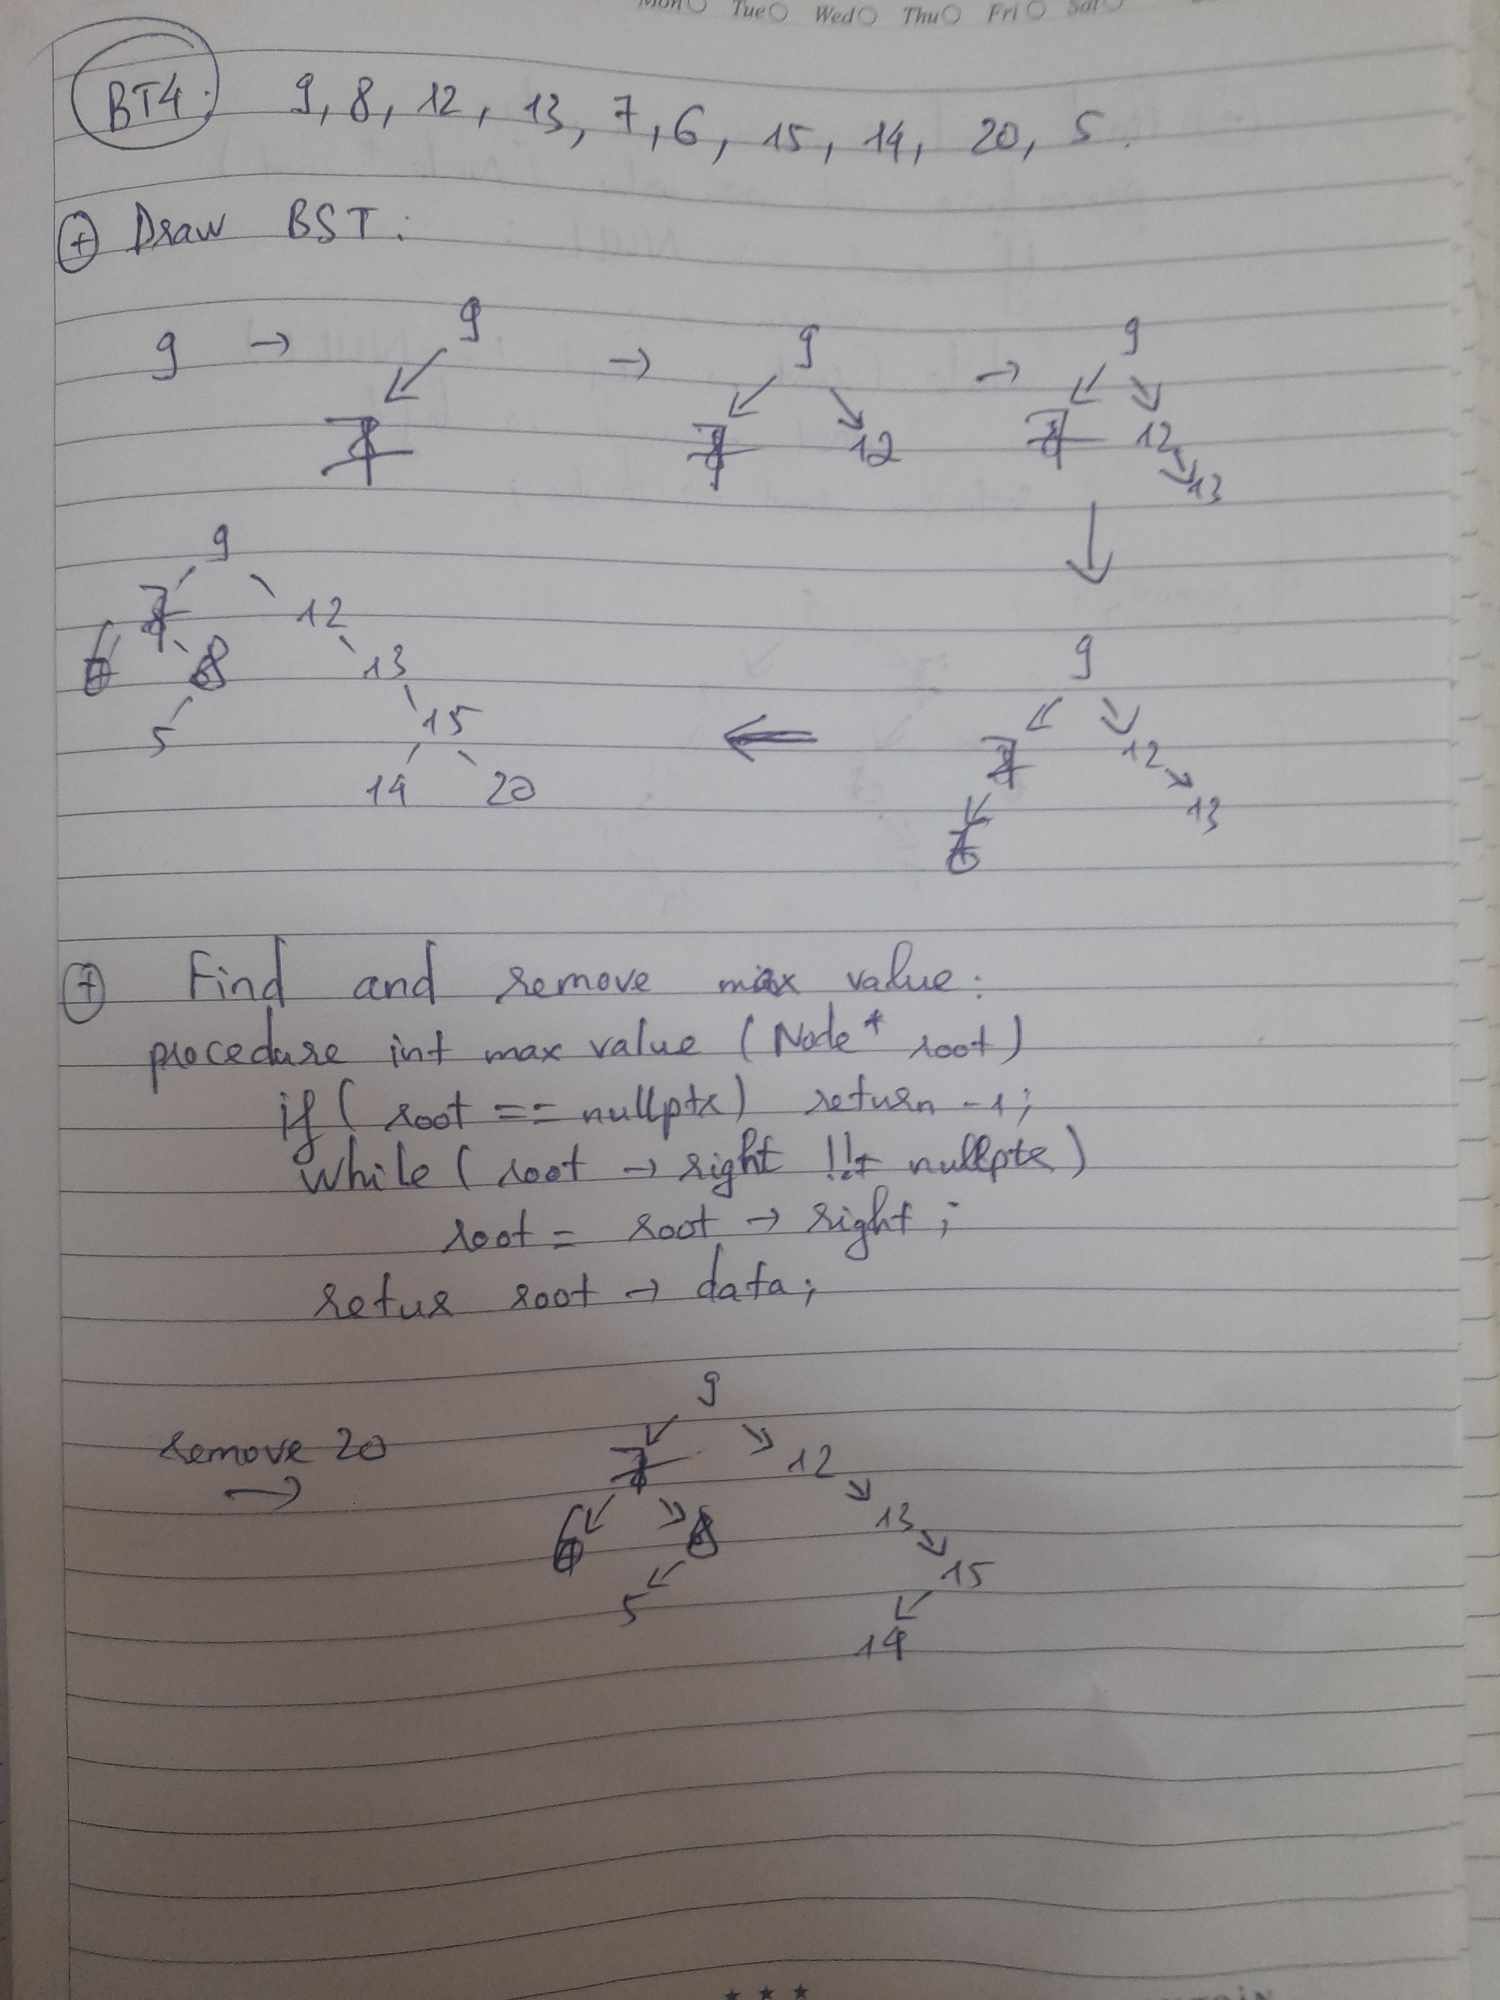 Mon Tue Wed Thu Fri Sat
BT4: 9, 8, 12, 13, 7, 6, 15, 14, 20, 5.
+ Draw BST:
9 → 9 → 9 → 9
7 7 12 7 12
13
9
7 12
6 8 13
5 15
14 20
9
7 12
6 13
+ Find and remove max value:
procedure int max value (Node* root)
if (root == nullptr) return -1;
while (root → right != nullptr)
root = root → right;
retur root → data;
remove 20
→
9
7 12
6 8 13
5 15
14